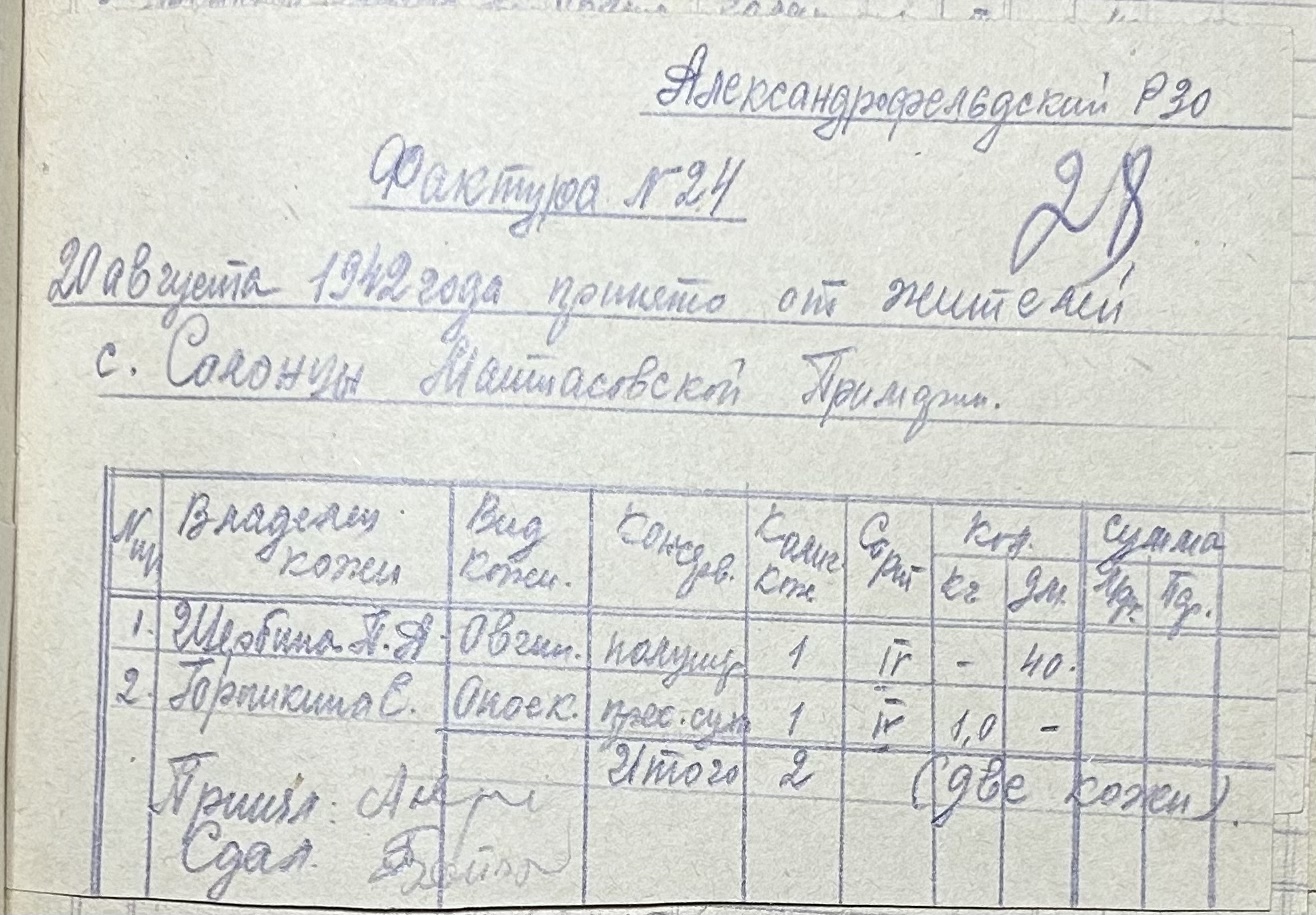 Александрофельдский РЗО
Фактура №24
28
20 августа 1942 года принято от жителей
с. Солонцы Матиасовской Примэрии.
№ пр Владелец кожи Вид кожи. Консерв. Колич. кож. Сорт Кол. кг дм. сумма Мрк. Пф.
1. Щербина П.А. Овчин. полушер 1 IV - 40.
2. С. Опоек. прес.сух 1 IV 1,0 -
Итого 2 (две кожи).
Принял:
Сдал.